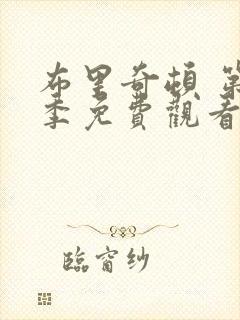 布里奇頓 第
季免費觀看
臨窗纱